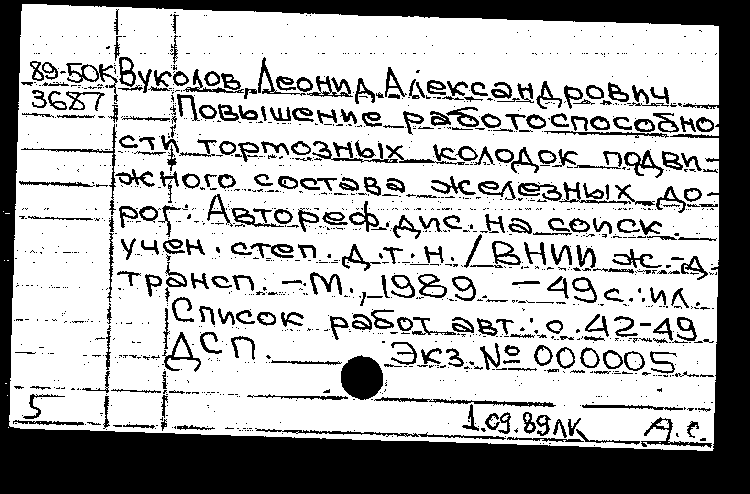 89-50К Вуколов, Леонид Александрович
3687 Повышение работоспособно-
сти тормозных колодок подви-
жного состава железных до-
рог: Автореф. дис. на соиск.
учен. степ. д.т.н. / ВНИИ ж.-д.
трансп. - М., 1989. - 49 с.: ил.
Список работ авт.: с. 42-49
ДСП. Экз. № 000005
5 1.09.89 ЛК А.С.